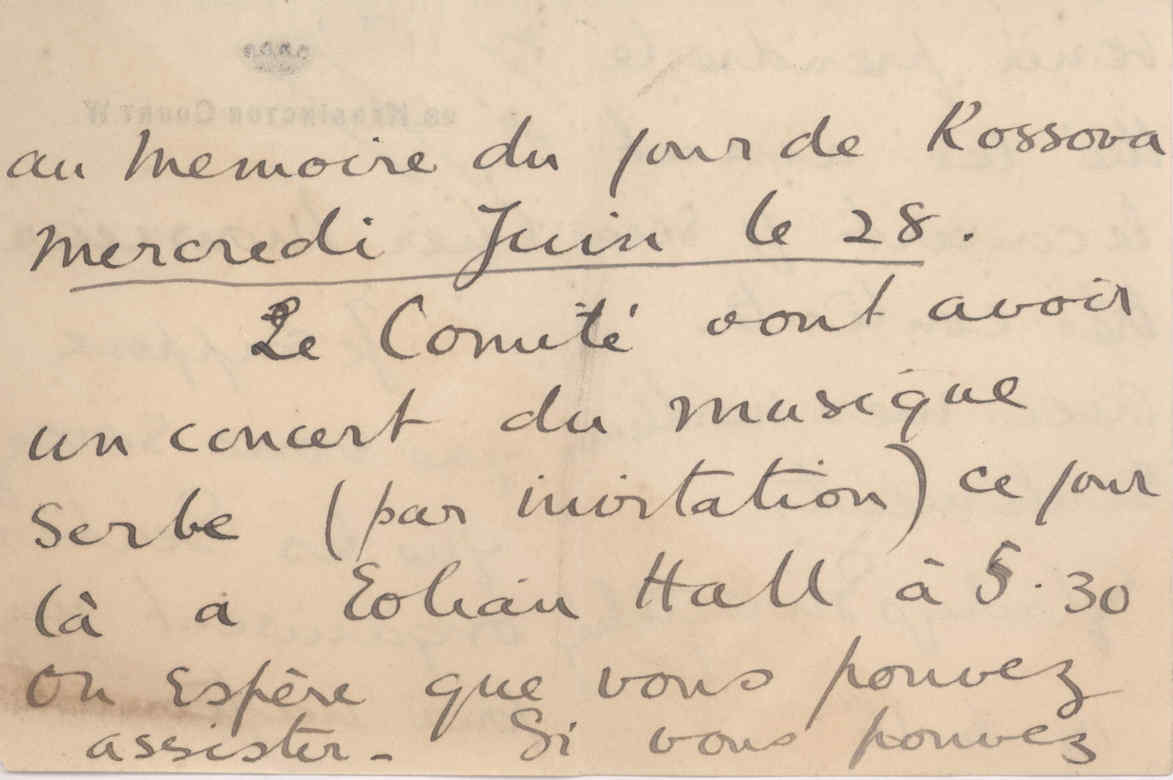 au Memoire du jour de Kossova
Mercredi Juin le 28.
Le Comité vont avoir
un concert du musique
Serbe (par invitation) ce jour
là a Eolian Hall à 5.30
On espère que vous pouvez
assister - Si vous pouvez